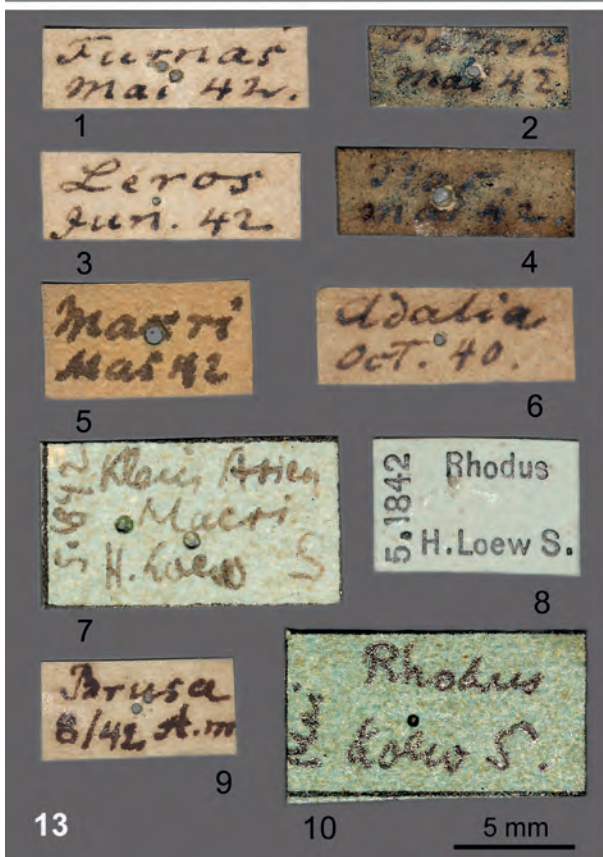 Furnas
Mai 42.
1
Patara
Mai 42
2
Leros
Jun. 42.
3
Mai 42.
4
Macri
Mai 42
5
Adalia
Oct. 40.
6
5.1842
Klein Asien
Macri
H. Loew S
7
5.1842
Rhodus
H. Loew S.
8
Brusa
6/42. A.m
9
Rhodus
Loew S.
10
13
5 mm